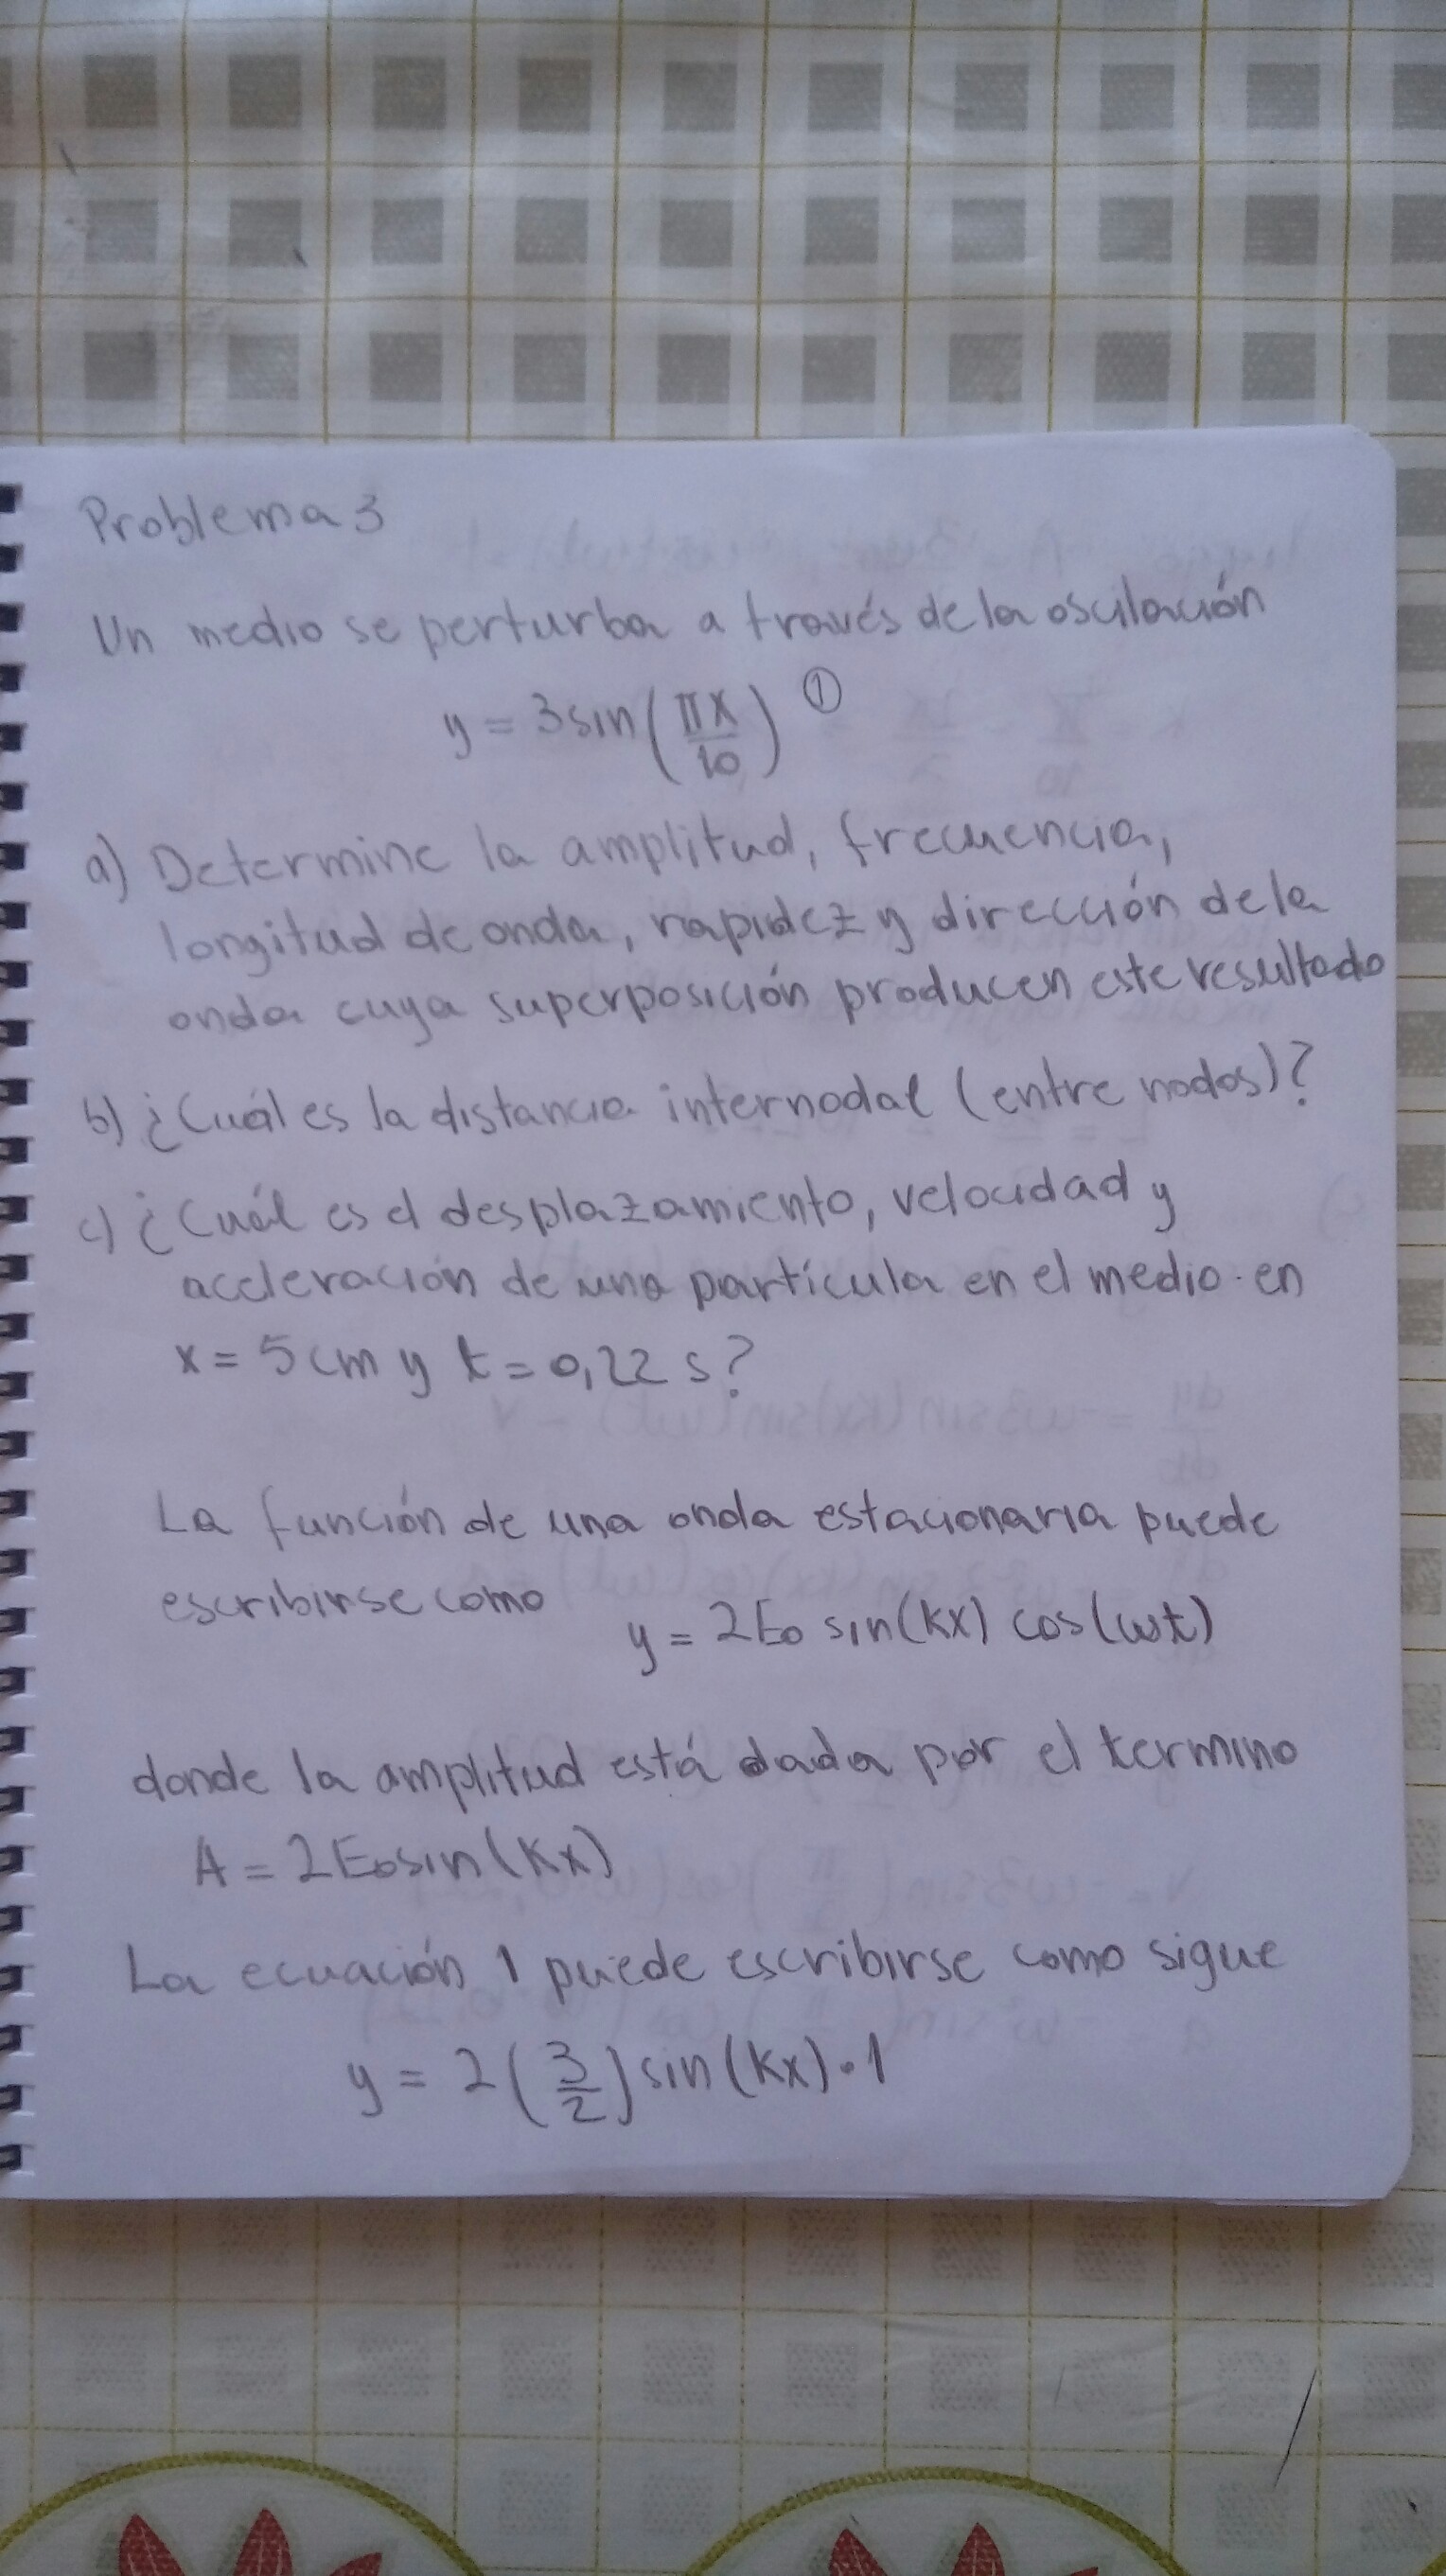 Problema 3
Un medio se perturba a través de la oscilación
y = 3 sin(πx/10) ①
a) Determine la amplitud, frecuencia,
longitud de onda, rapidez y dirección de la
onda cuya superposición producen este resultado
b) ¿Cuál es la distancia internodal (entre nodos)?
c) ¿Cuál es el desplazamiento, velocidad y
aceleración de una partícula en el medio en
x = 5 cm y t = 0,22 s?
La función de una onda estacionaria puede
escribirse como
y = 2E₀ sin(kx) cos(ωt)
donde la amplitud está dada por el termino
A = 2E₀ sin(kx)
La ecuación 1 puede escribirse como sigue
y = 2(3/2) sin(kx)·1